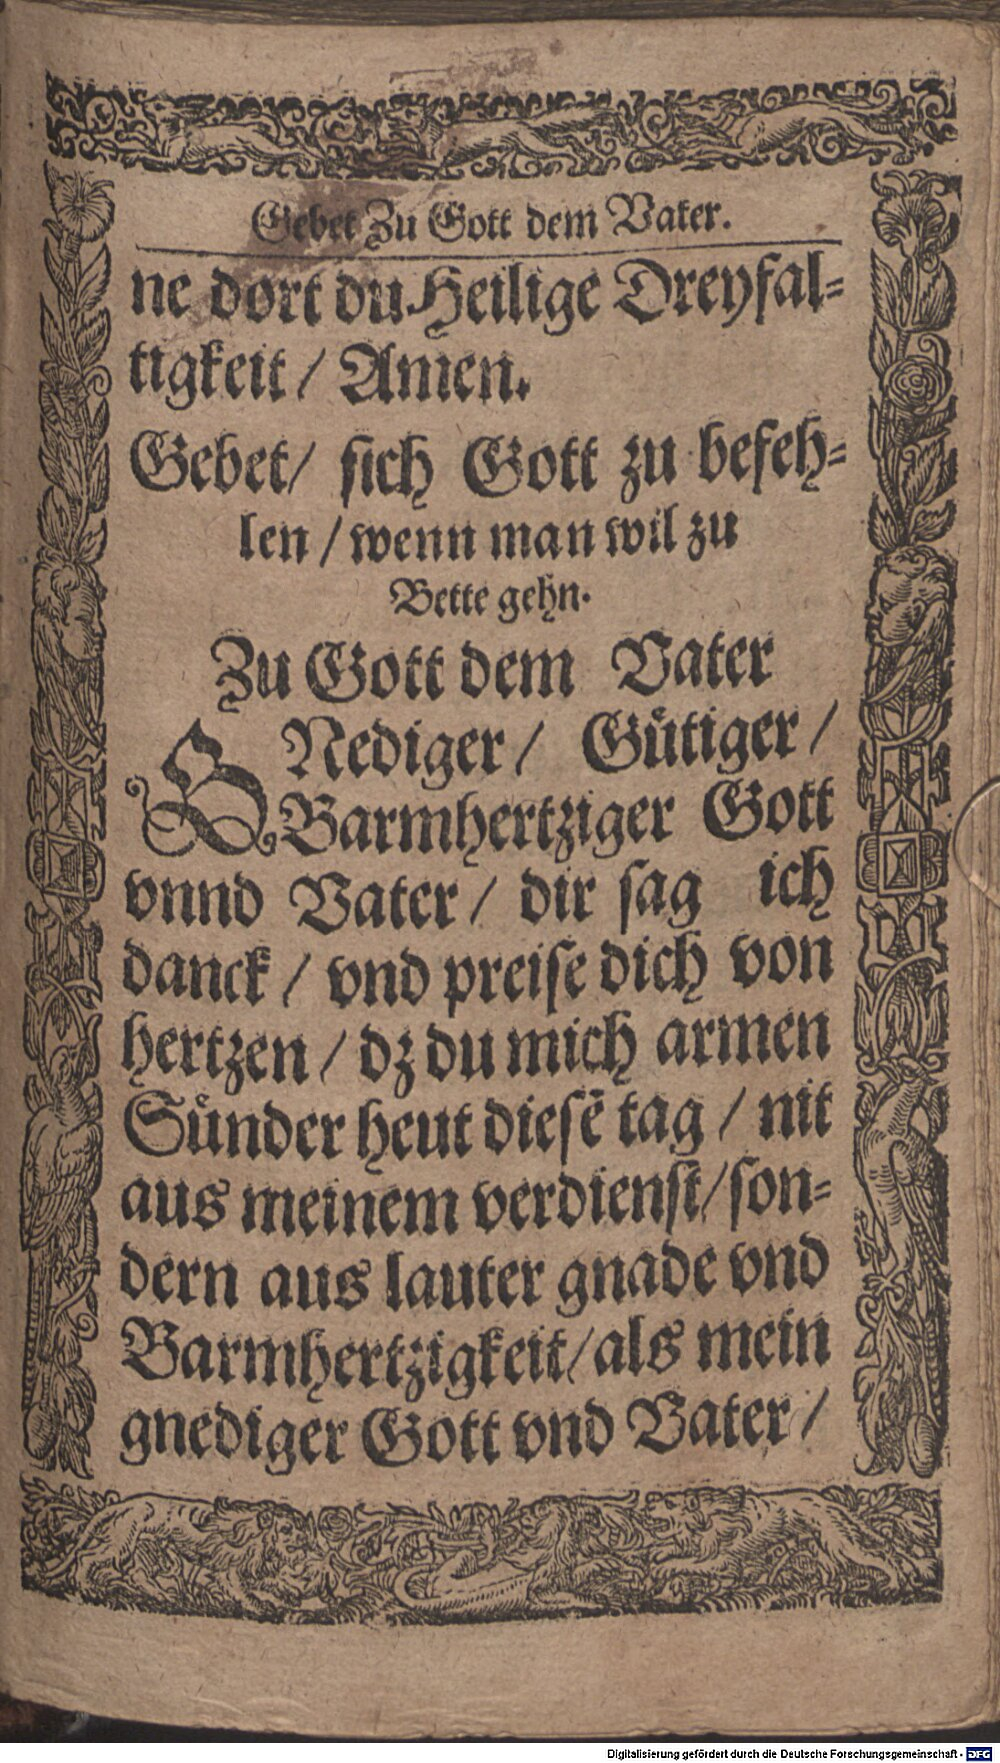 Gebet Zu Gott dem Vater.
ne dort du Heilige Dreyfal-
tigkeit / Amen.
Gebet / sich Gott zu befeh-
len / wenn man wil zu
Bette gehn.
Zu Gott dem Vater
GNediger / Gütiger /
Barmhertziger Gott
vnnd Vater / dir sag ich
danck / vnd preise dich von
hertzen / dz du mich armen
Sünder heut diesẽ tag / nit
aus meinem verdienst / son-
dern aus lauter gnade vnd
Barmhertzigkeit / als mein
gnediger Gott vnd Vater /
Digitalisierung gefördert durch die Deutsche Forschungsgemeinschaft - DFG